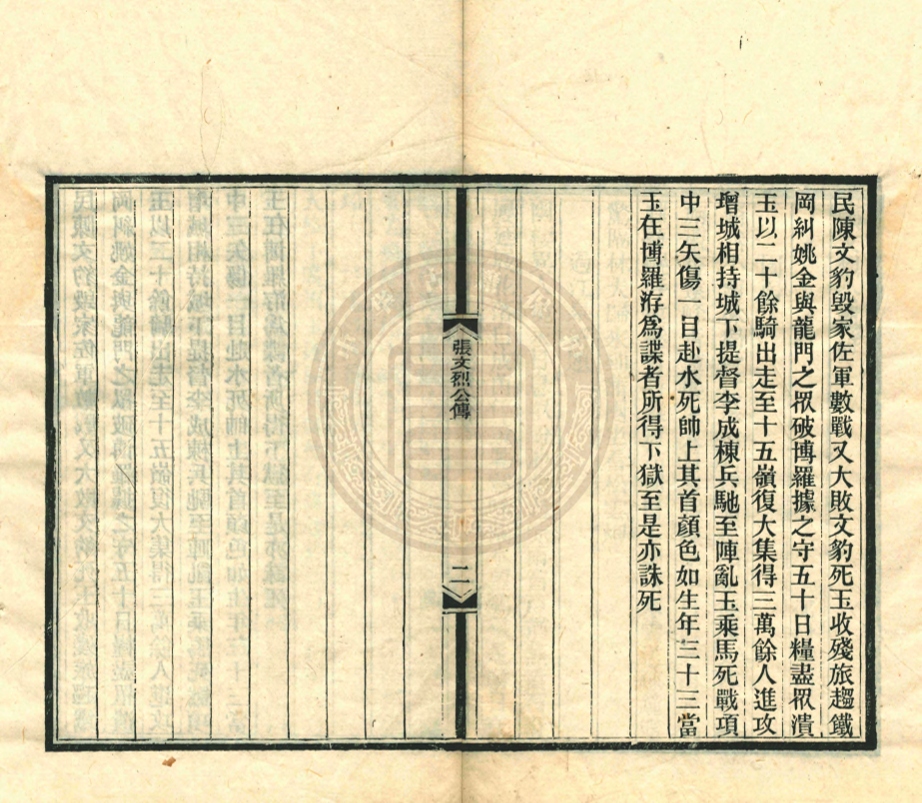 民陳文豹毀家佐軍數戰又大敗文豹死玉收殘旅趨鐵
岡糾姚金與龍門之眾破博羅據之守五十日糧盡眾潰
玉以二十餘騎出走至十五嶺復大集得三萬餘人進攻
增城相持城下提督李成棟兵馳至陣亂玉乘馬死戰項
中三矢傷一目赴水死帥上其首顏色如生年三十三當
玉在博羅洊為諜者所得下獄至是亦誅死
張文烈公傳
二